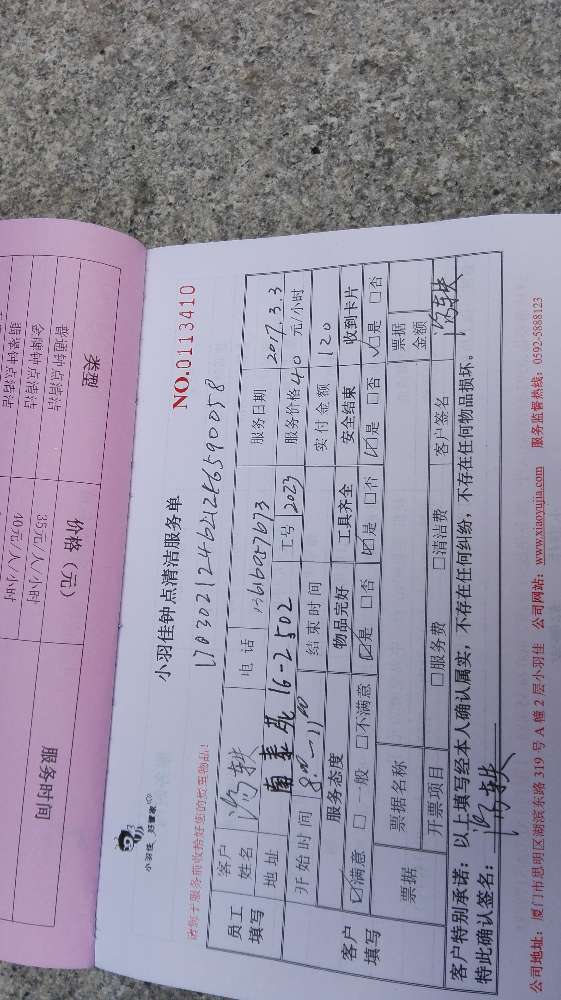 小羽佳 好管家
小羽佳钟点清洁服务单
NO.0113410
请您于服务前收拾好您的贵重物品!
17030212464124659 0058
员工填写
客户姓名
电话
服务日期 2017.3.3
地址 16-2502
工号 2023
服务价格 40 元/小时
开始时间 8:00-11:00
结束时间
实付金额 120
客户填写
服务态度 物品完好 工具齐全 安全结束 收到卡片
☑满意 □一般 □不满意 ☑是 □否 ☑是 □否 ☑是 □否 ☑是 □否
票据 票据名称 票据金额
开票项目 □服务费 □清洁费 客户签名
客户特别承诺:以上填写经本人确认属实,不存在任何纠纷,不存在任何物品损坏。
特此确认签名:
公司地址:厦门市思明区湖滨东路 319 号 A 幢 2 层小羽佳 公司网站:www.xiaoyujia.com 服务监督热线:0592-5888123
类型 价格(元) 服务时间
普通钟点清洁 35元/人/小时
金牌钟点清洁 40元/人/小时